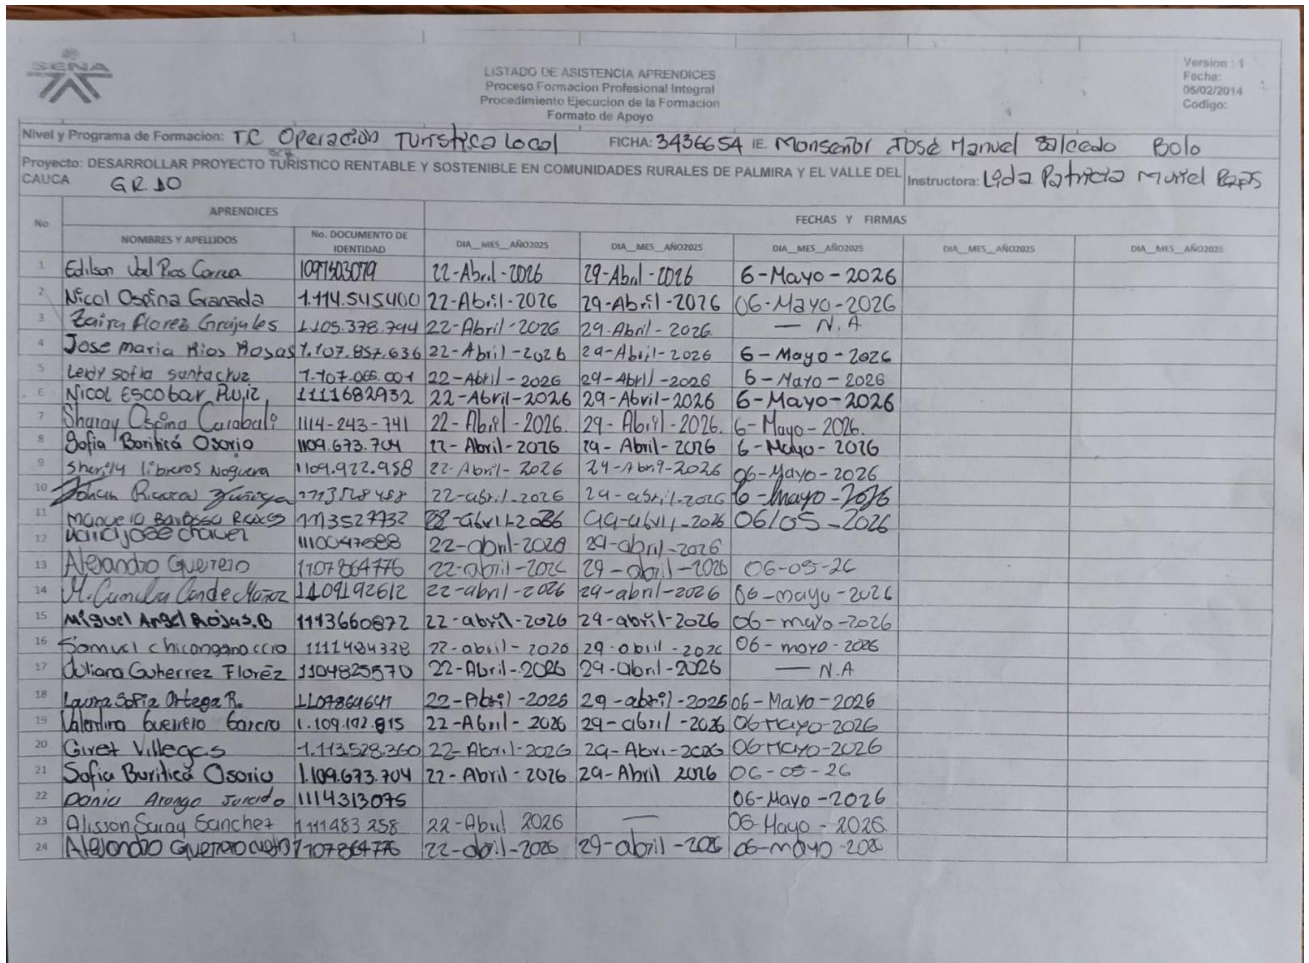 SENA
LISTADO DE ASISTENCIA APRENDICES
Proceso Formacion Profesional Integral
Procedimiento Ejecucion de la Formacion
Formato de Apoyo
Version : 1
Fecha:
05/02/2014
Codigo:
Nivel y Programa de Formacion: TC Operación Turística Local FICHA: 3436654 IE. Monseñor José Manuel Salcedo Bolo
Proyecto: DESARROLLAR PROYECTO TURISTICO RENTABLE Y SOSTENIBLE EN COMUNIDADES RURALES DE PALMIRA Y EL VALLE DEL CAUCA GR 10 Instructora: Lida Patricia Muriel
No APRENDICES FECHAS Y FIRMAS
NOMBRES Y APELLIDOS No. DOCUMENTO DE IDENTIDAD DIA__MES__AÑO2025 DIA__MES__AÑO2025 DIA__MES__AÑO2025 DIA__MES__AÑO2025 DIA__MES__AÑO2025
1 Edilson 1097503079 22-Abril-2026 29-Abril-2026 6-Mayo-2026
2 Nicol Ospina Granada 1.114.545400 22-Abril-2026 29-Abril-2026 06-Mayo-2026
3 Zaira florez Grajales 1.105.378.794 22-Abril-2026 29-Abril-2026 — N.A
4 Jose maria Rios Rosas 1.107.857.636 22-Abril-2026 29-Abril-2026 6-Mayo-2026
5 Leidy sofia santacruz 1.107.066.001 22-Abril-2026 29-Abril-2026 6-Mayo-2026
6 Nicol EscobaR Ruiz 1111682932 22-Abril-2026 29-Abril-2026 6-Mayo-2026
7 Sharay Ospina Carabali 1114-243-741 22-Abril-2026. 29-Abril-2026. 6-Mayo-2026.
8 Sofia Buriticá Osorio 1109.673.704 22-Abril-2026 29-Abril-2026 6-Mayo-2026
9 Sherily libreros Noguera 1109.922.958 22-Abril-2026 29-Abril-2026 06-Mayo-2026
10 Johan 1113528458 22-abril-2026 29-abril-2026 6-mayo-2026
11 Manuela Barbosa 1113527732 22-abril-2026 29-abril-2026 06/05-2026
12 1110047688 22-abril-2026 29-abril-2026
13 Alejandro Guerrero 1107864776 22-abril-2026 29-abril-2026 06-05-26
14 M. Camila Conde Muñoz 1109192612 22-abril-2026 29-abril-2026 06-mayo-2026
15 Miguel Angel Rojas.B 1113660872 22-abril-2026 29-abril-2026 06-mayo-2026
16 Samuel chicangana 1111484338 22-abril-2026 29-abril-2026 06-mayo-2026
17 Juliana Gutierrez Florez 1104825570 22-Abril-2026 29-Abril-2026 — N.A
18 Laura Sofia Ortega R. 1107864641 22-Abril-2026 29-abril-2026 06-Mayo-2026
19 Valentina Guerrero Garcia 1.109.192.815 22-Abril-2026 29-abril-2026 06 Mayo-2026
20 Giret Villegas 1.113.528.360 22-Abril-2026 29-Abri-2026 06 Mayo-2026
21 Sofia Buritica Osorio 1.109.673.704 22-Abril-2026 29-Abril 2026 06-05-26
22 Arango 1114313075 06-Mayo-2026
23 Alisson Saray Sanchez 1111483258 22-Abril 2026 — 06-Mayo-2026
24 Alejandro Guerrero 1107864776 22-abril-2026 29-abril-2026 06-mayo-206